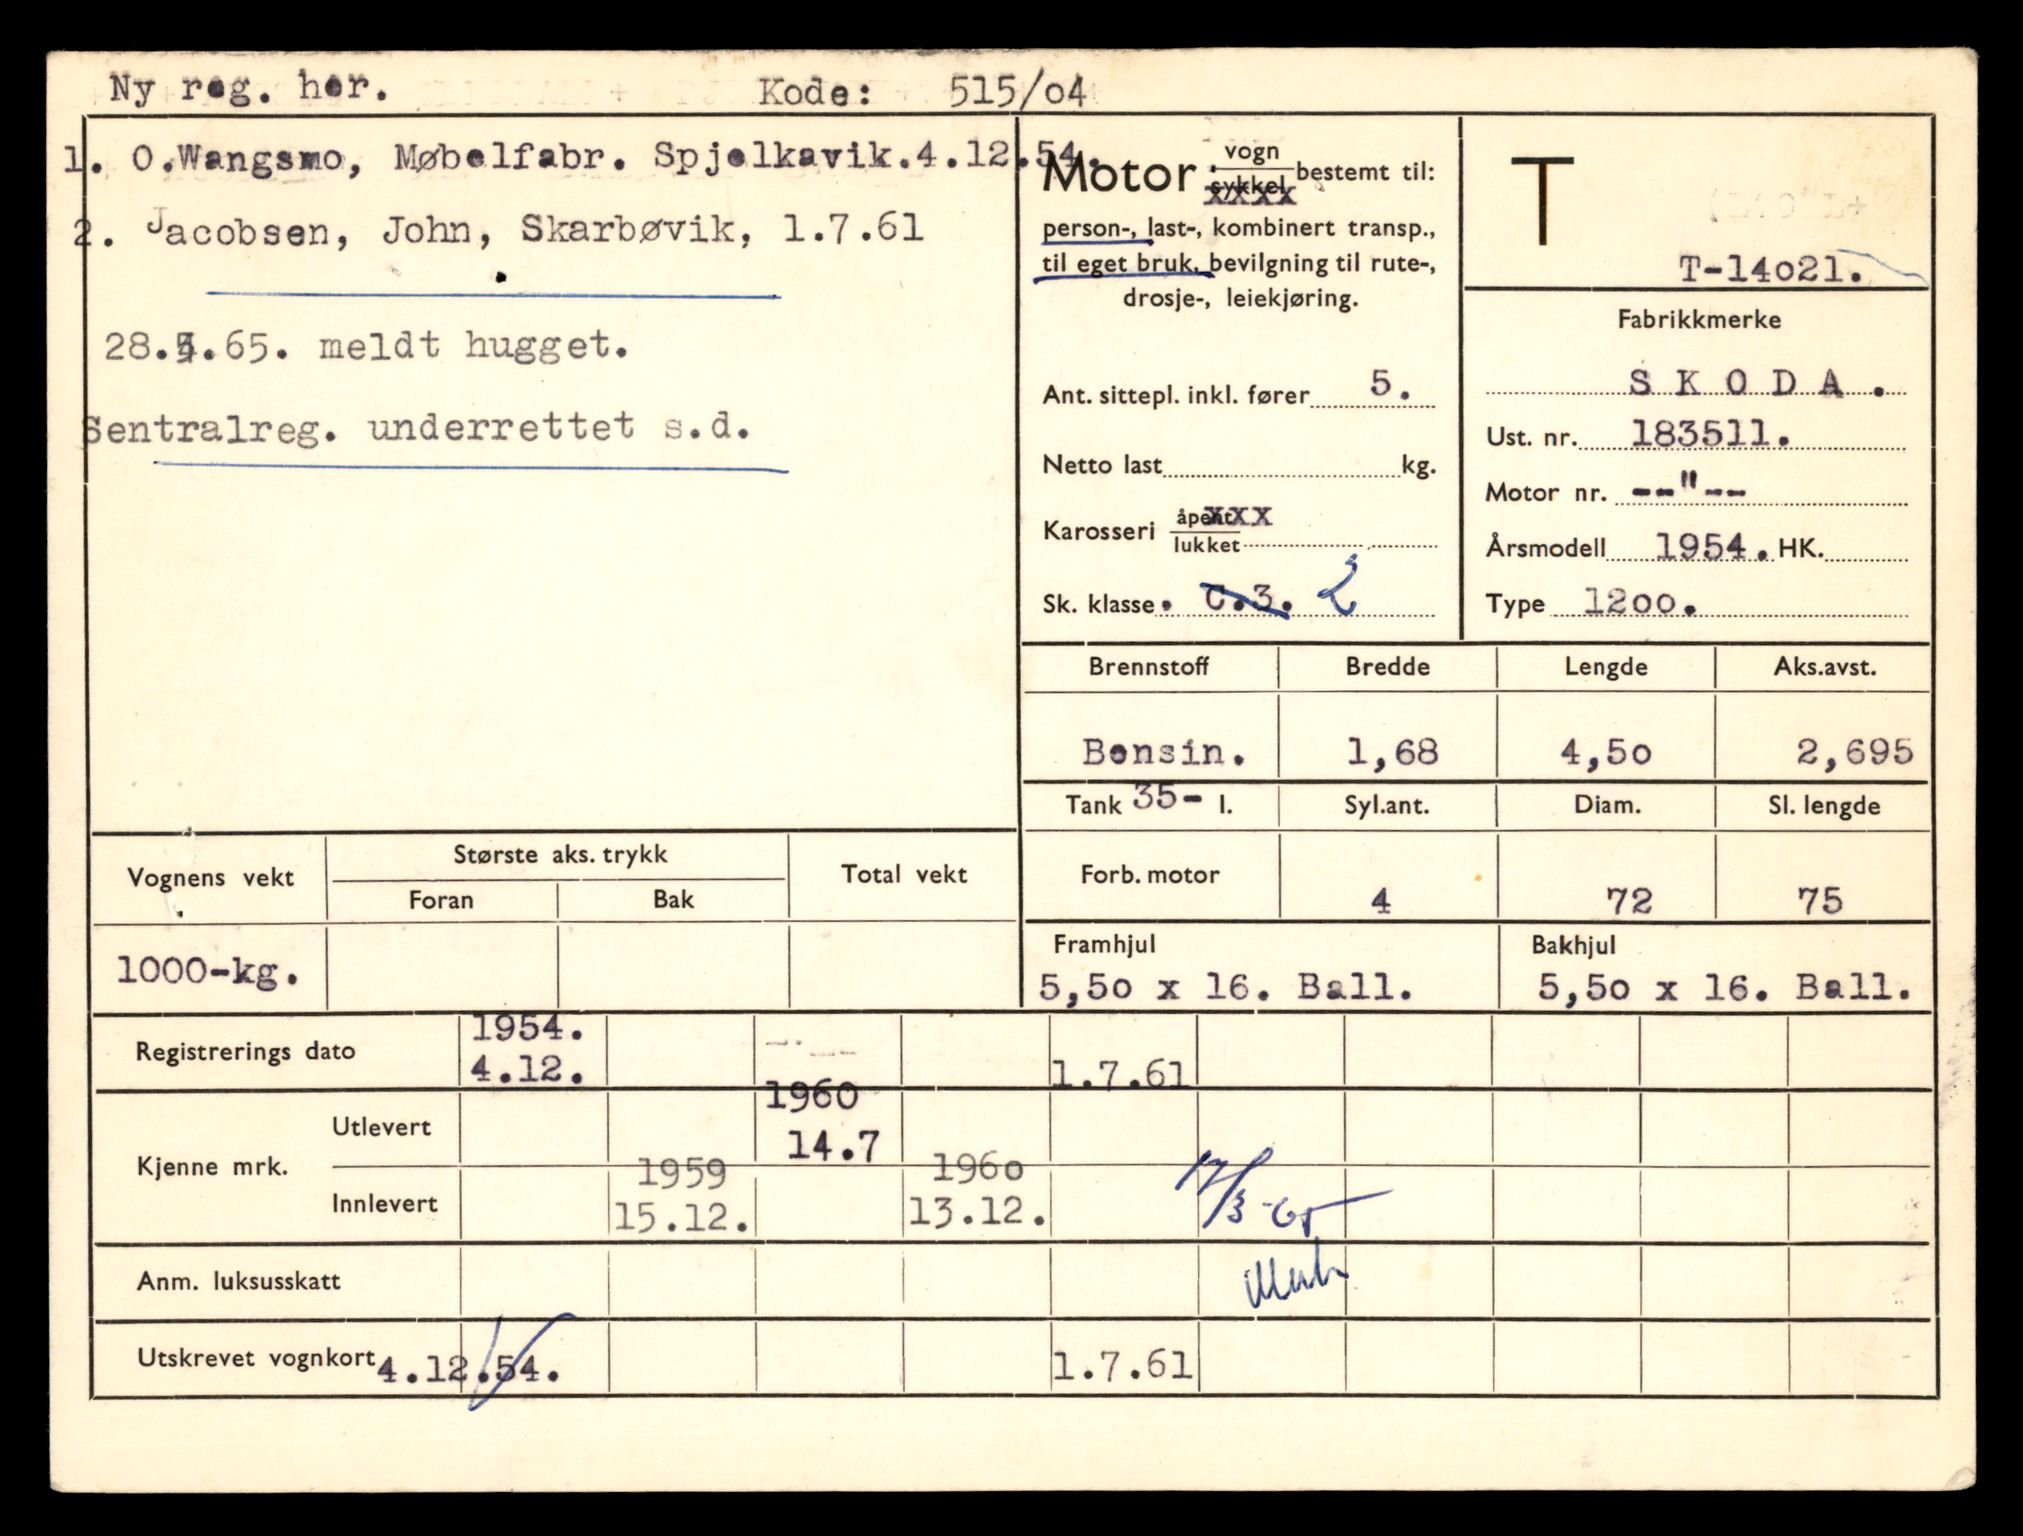 Ny reg. her. Kode: 515/o4
1. O.Wangsmo, Møbelfabr. Spjelkavik.4.12.54.
2. Jacobsen, John, Skarbøvik, 1.7.61
28.4.65. meldt hugget.
Sentralreg. underrettet s.d.
Motor- vogn
sykkel xxxx bestemt til:
person-, last-, kombinert transp.,
til eget bruk, bevilgning til rute-,
drosje-, leiekjøring.
Ant. sittepl. inkl. fører 5.
Netto last kg.
Karosseri åpent xxx
lukket
Sk. klasse. C.3. 2
T
T-14o21.
Fabrikkmerke
S K O D A .
Ust. nr. 183511.
Motor nr. --"--
Årsmodell 1954. HK.
Type 12oo.
Brennstoff Bredde Lengde Aks.avst.
Bensin. 1,68 4,5o 2,695
Tank 35- l. Syl.ant. Diam. Sl. lengde
Forb. motor 4 72 75
Framhjul Bakhjul
5,5o x 16. Ball. 5,5o x 16. Ball.
Vognens vekt Største aks. trykk Total vekt
Foran Bak
1000-kg.
Registrerings dato 1954.
4.12. 1.7.61
Kjenne mrk. Utlevert 1960
14.7
Innlevert 1959 196o
15.12. 13.12. 17/3-65
Anm. luksusskatt
Utskrevet vognkort 4.12.54. 1.7.61